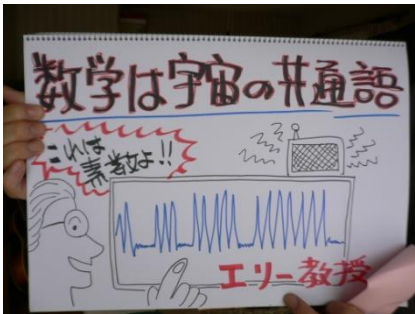 数学は宇宙の共通語
これは
素数よ!!
エリー教授